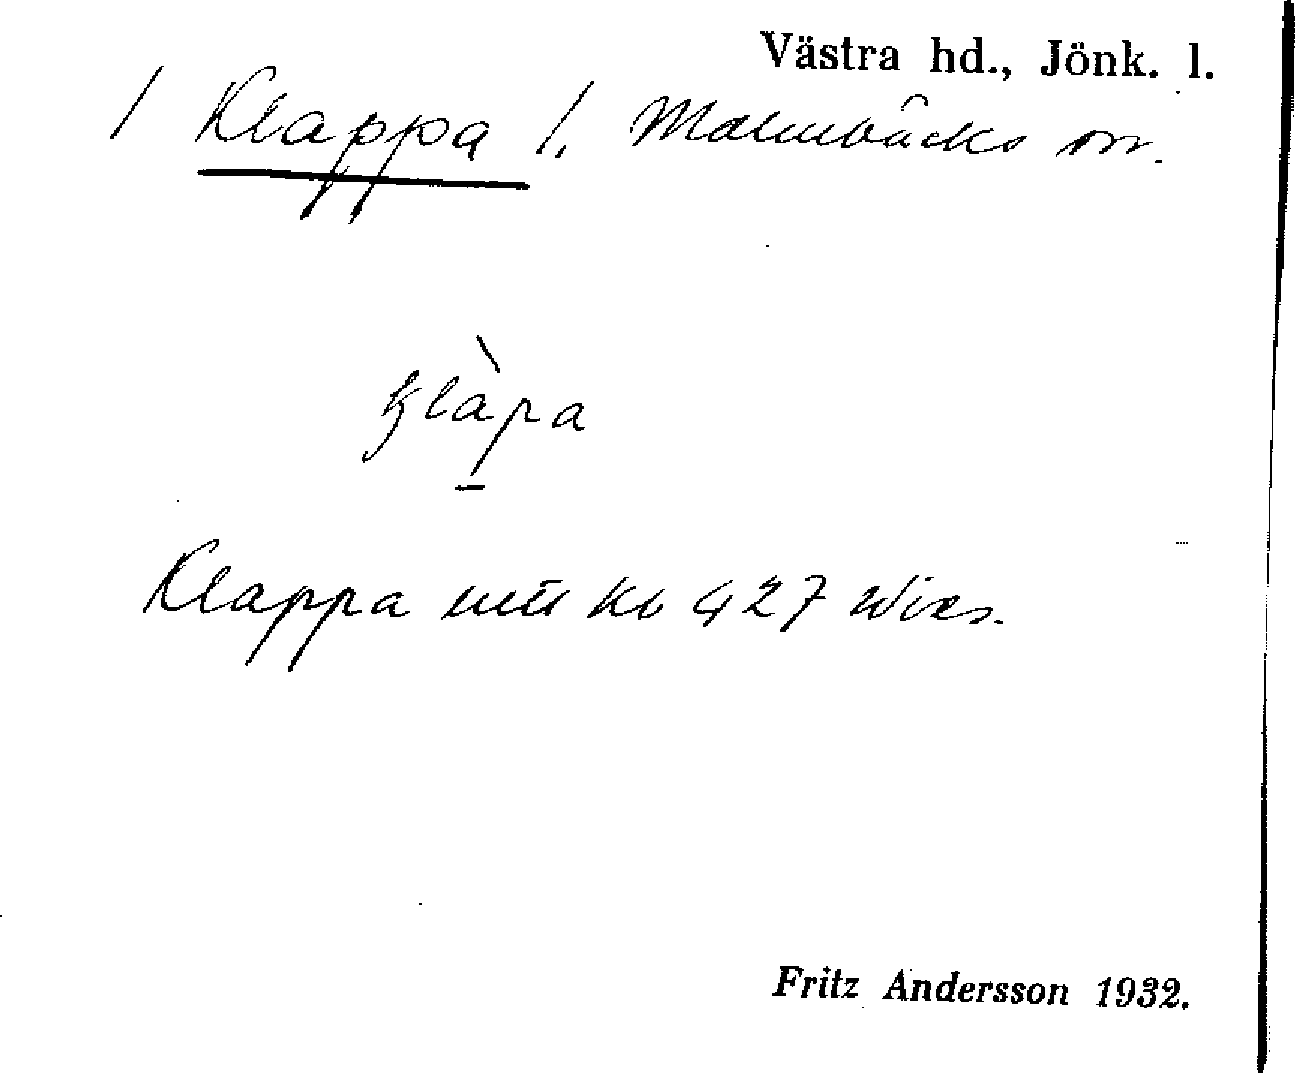 Västra hd., Jönk. l.
/ Klappa /. Malmbäcks sn.
klàpa
Klappa kb 427 Wies.
Fritz Andersson 1932.